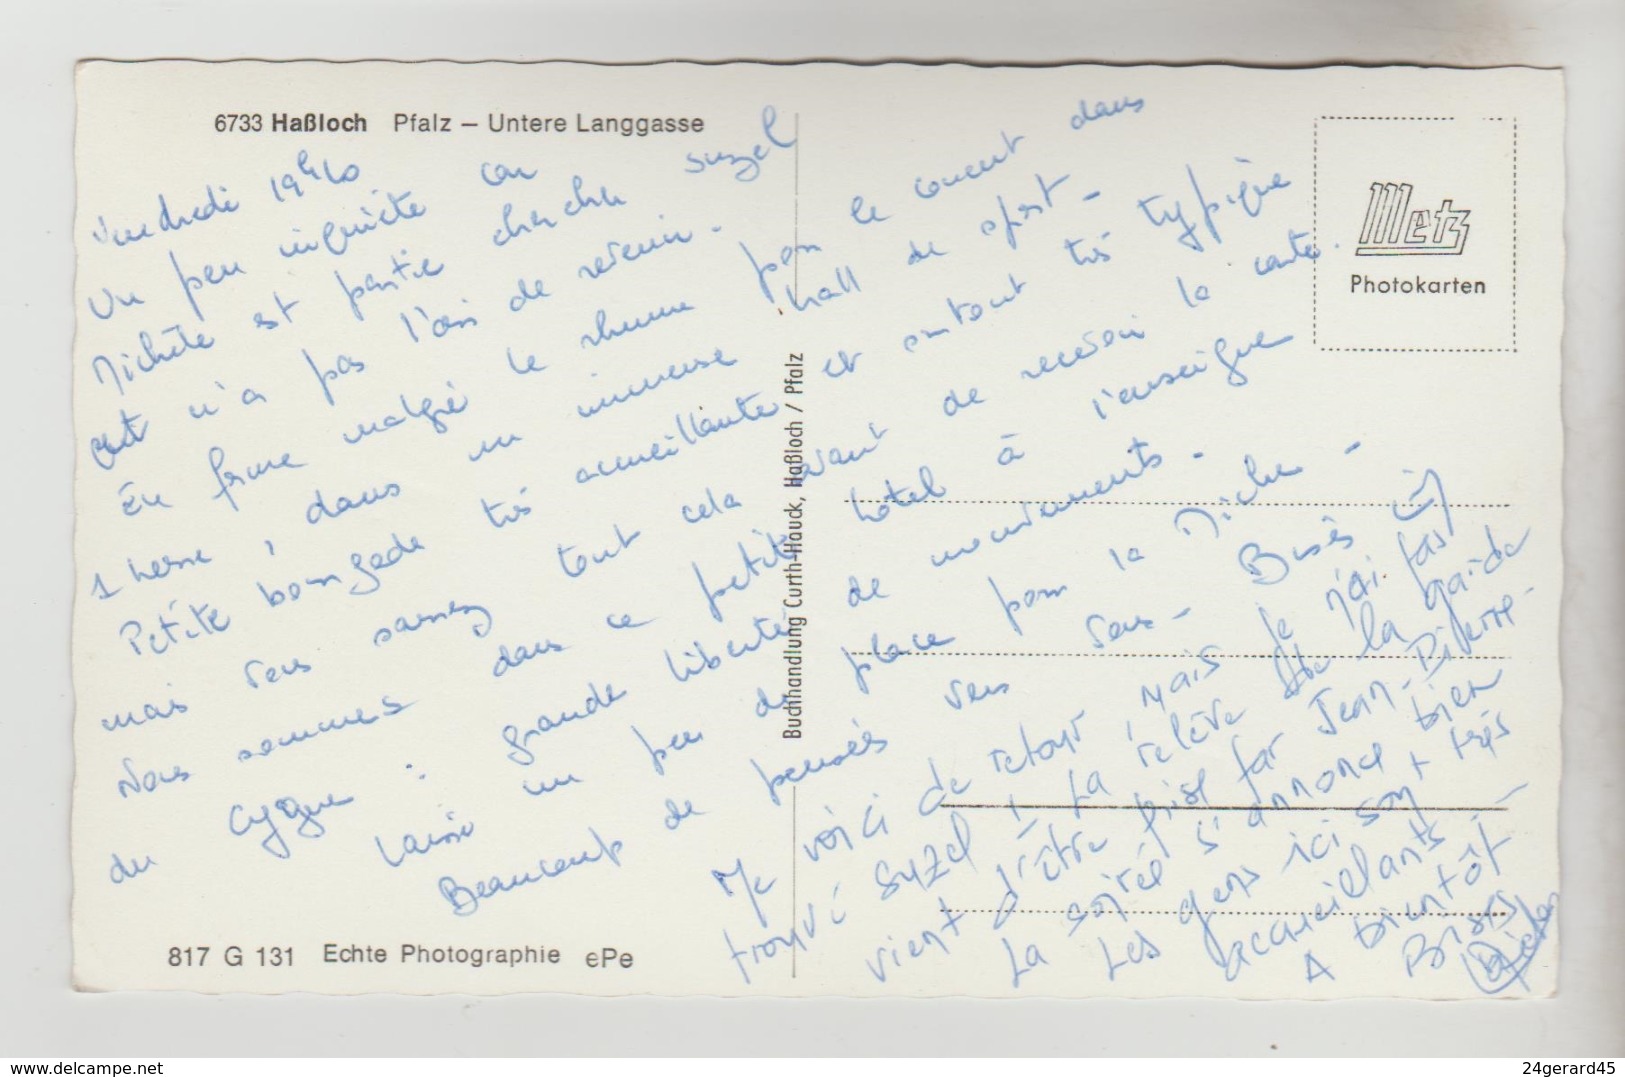 6733 Haßloch Pfalz – Untere Langgasse
Vendredi 19h40
Un peu inquiète car Suzel
Michèle est partie chercher
et n'a pas l'air de revenir.
En forme malgré le rhume pour le concert dans
1 heure, dans un immense hall de sport -
Petite bourgade très accueillante et surtout très typique
mais vous savez tout cela avant de recevoir la carte.
Nous sommes dans ce petit hôtel à l'enseigne
du cygne : grande liberté de mouvements.
Laisse un peu de place pour la Miche -
Beaucoup de pensées vers vous - Bisès
Me voici de retour mais je n'ai pas
trouvé Suzel ! La relève de la garde
vient d'être prise par Jean-Pierre.
La soirée s'annonce bien
Les gens ici sont très
accueillants -
A bientôt
Bises
Buchhandlung Curth-Hauck, Haßloch / Pfalz
Metz
Photokarten
817 G 131 Echte Photographie ePe
www.delcampe.net
24gerard45